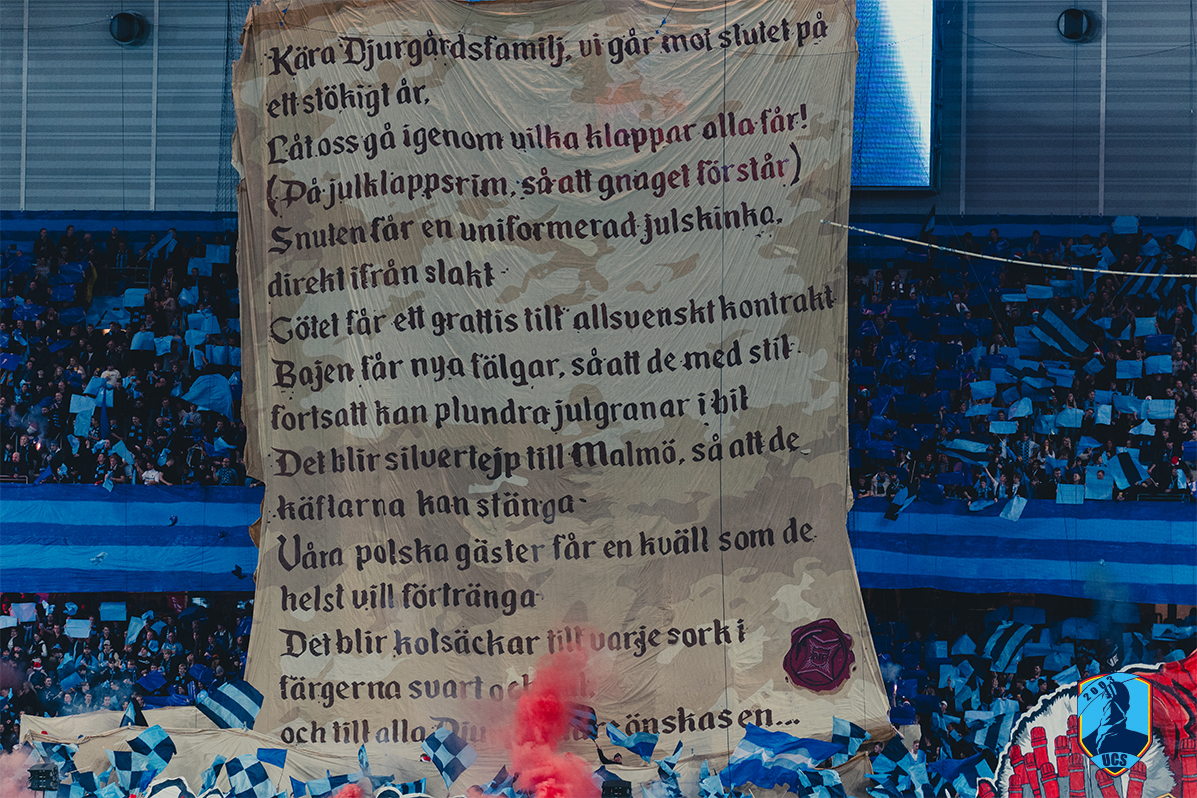 Kära Djurgårdsfamilj, vi går mot slutet på
ett stökigt år,
Låt oss gå igenom vilka klappar alla får!
(På julklappsrim, så att gnaget förstår)
Snuten får en uniformerad julskinka,
direkt ifrån slakt
Götet får ett grattis till allsvenskt kontrakt
Bajen får nya fälgar, så att de med stil
fortsatt kan plundra julgranar i bil
Det blir silvertejp till Malmö, så att de
käftarna kan stänga
Våra polska gäster får en kväll som de
helst vill förtränga
Det blir kolsäckar till varje sork i
färgerna svart och
och till alla önskas en...
2003
UCS